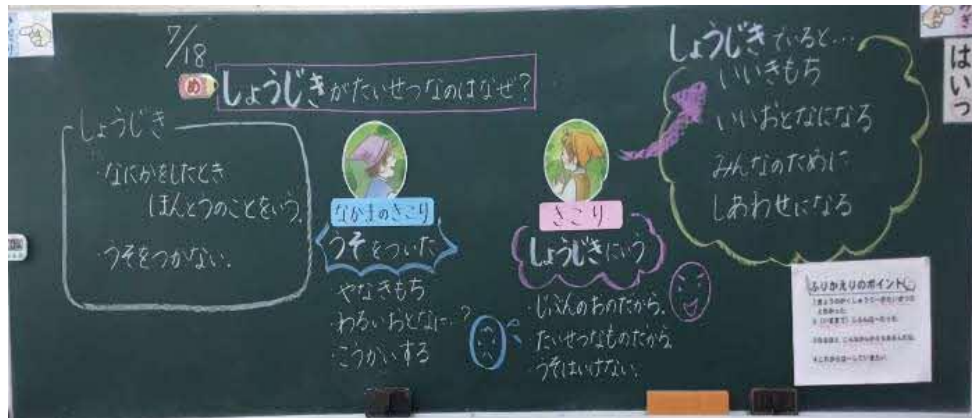 7/18
め しょうじきがたいせつなのはなぜ?
しょうじき
・なにかをしたとき
ほんとうのことをいう。
・うそをつかない。
なかまのきこり
うそをついた
やなきもち
・わるいおとなに・・?
・こうかいする
きこり
しょうじきにいう
・じぶんのおのだから。
・たいせつなものだから
・うそはいけない。
しょうじきでいると…
いいきもち
いいおとなになる
みんなのために
しあわせになる
はいっ
ふりかえりのポイント